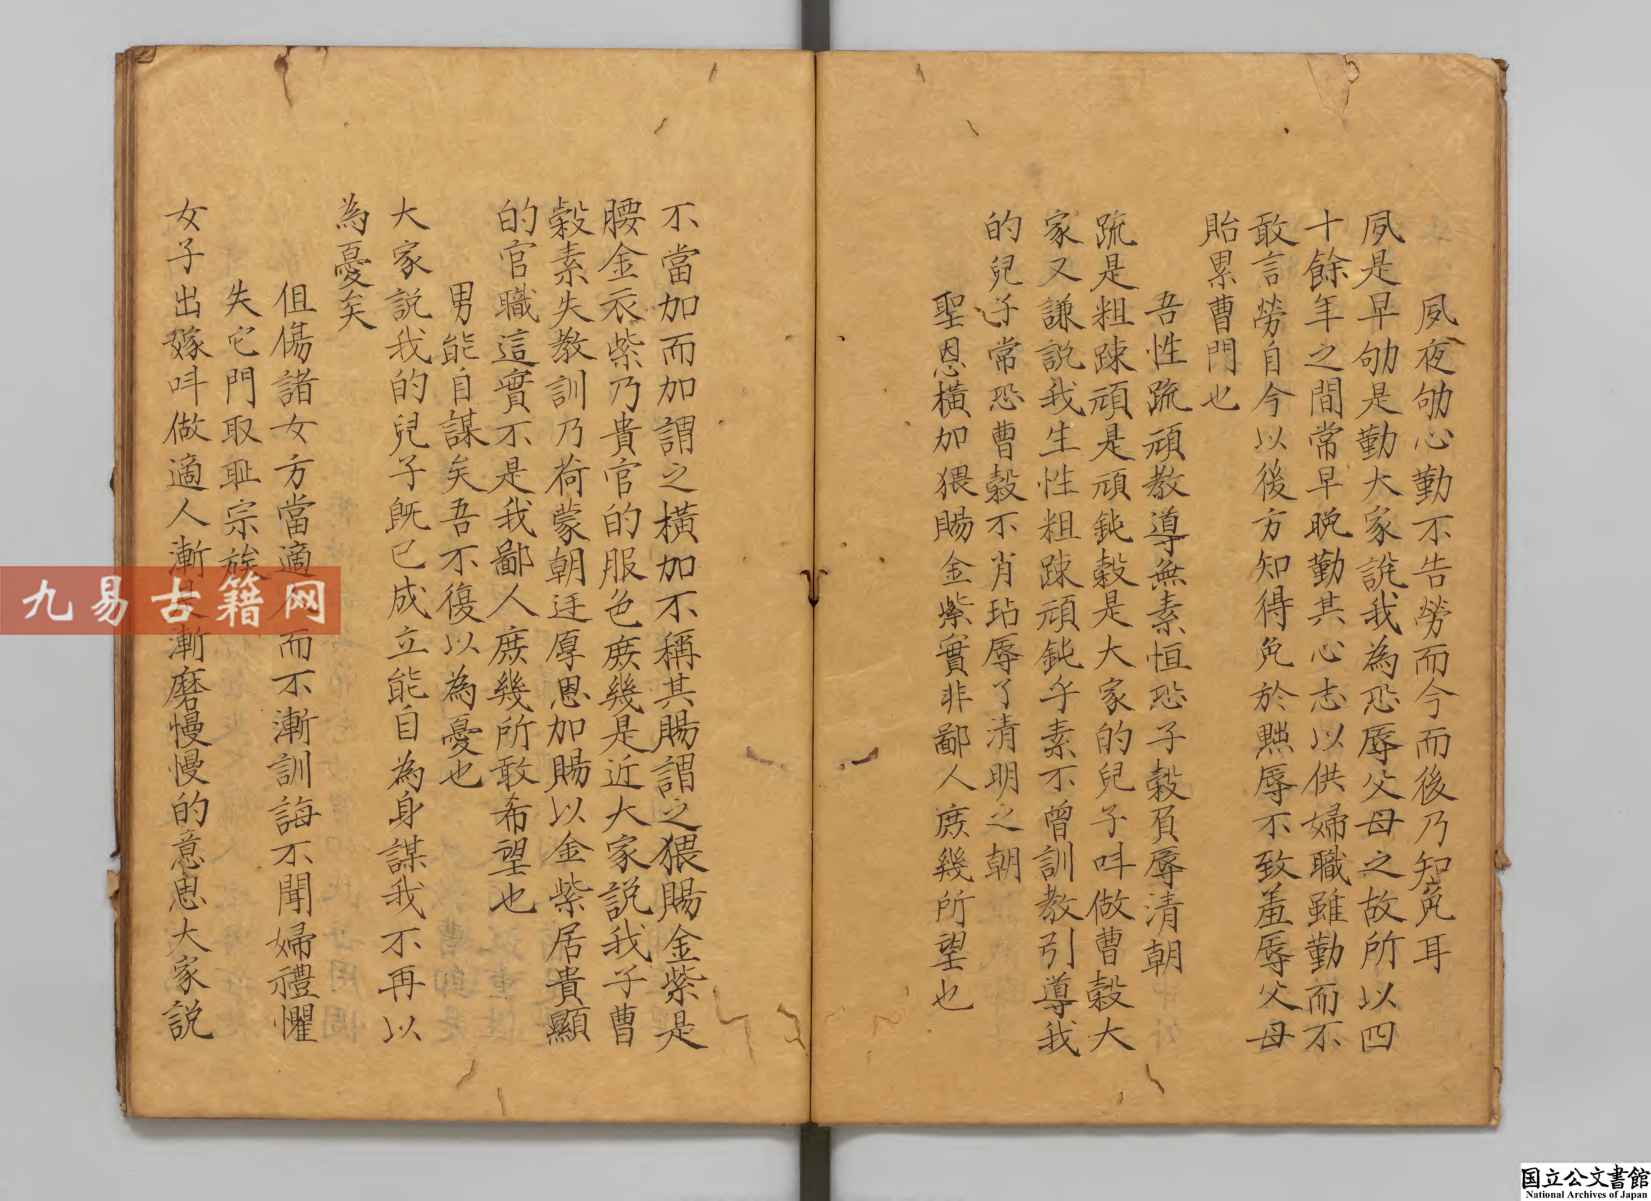 夙夜劬心勤不告勞而今而後乃知免耳
夙是早劬是勤大家說我為恐辱父母之故所以四
十餘年之間常早晚勤其心志以供婦職雖勤而不
敢言勞自今以後方知得免於黜辱不致羞辱父母
貽累曹門也
吾性疏頑教導無素恒恐子穀負辱清朝
疏是粗踈頑是頑鈍穀是大家的兒子呌做曹穀大
家又謙說我生性粗踈頑鈍乎素不曾訓教引導我
的兒子常恐曹穀不肖玷辱了清明之朝
聖恩橫加猥賜金紫實非鄙人庶幾所望也
不當加而加謂之橫加不稱其賜謂之猥賜金紫是
腰金衣紫乃貴官的服色庶幾是近大家說我子曹
穀素失教訓乃荷蒙朝廷厚恩加賜以金紫居貴顯
的官職這實不是我鄙人庶幾所敢希望也
男能自謀矣吾不復以為憂也
大家說我的兒子旣已成立能自為身謀我不再以
為憂矣
但傷諸女方當適人而不漸訓誨不聞婦禮懼
失它門取耻宗族
女子出嫁呌做適人漸是漸磨慢慢的意思大家說
九易古籍网
国立公文書館
National Archives of Japan